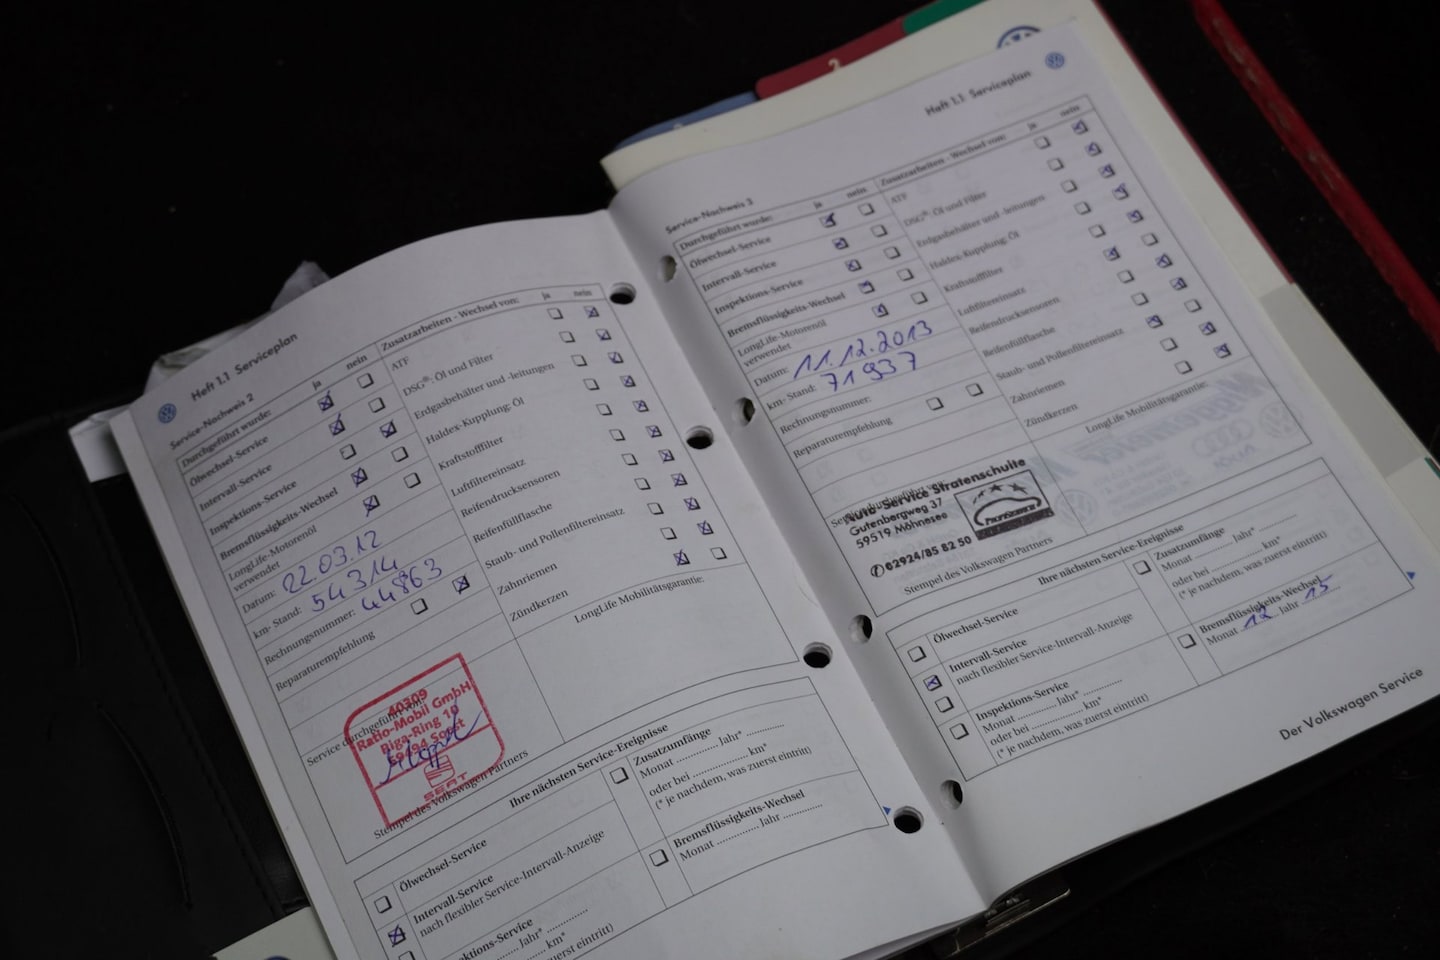 Heft 1.1 Serviceplan
Service-Nachweis 2
Durchgeführt wurde: ja nein
Ölwechsel-Service
Intervall-Service
Inspektions-Service
Bremsflüssigkeits-Wechsel
LongLife-Motorenöl
verwendet
Datum: 22.03.12
km- Stand: 54314
Rechnungsnummer: 44863
Reparaturempfehlung
Zusatzarbeiten - Wechsel von: ja nein
ATF
DSG®: Öl und Filter
Erdgasbehälter und -leitungen
Haldex-Kupplung: Öl
Kraftstofffilter
Luftfiltereinsatz
Reifendrucksensoren
Reifenfüllflasche
Staub- und Pollenfiltereinsatz
Zahnriemen
Zündkerzen
LongLife Mobilitätsgarantie:
Service durchgeführt von:
40309
Ratio-Mobil GmbH
Riga-Ring 10
59494 Soest
SEAT
Stempel des Volkswagen Partners
Ihre nächsten Service-Ereignisse
Ölwechsel-Service
Intervall-Service
nach flexibler Service-Intervall-Anzeige
ktions-Service
Jahr*
km*
zuerst eintritt)
Zusatzumfänge
Monat ............ Jahr* ............
oder bei .................... km*
(* je nachdem, was zuerst eintritt)
Bremsflüssigkeits-Wechsel
Monat ............ Jahr ............
2
Heft 1.1 Serviceplan
Service-Nachweis 3
Durchgeführt wurde: ja nein
Ölwechsel-Service
Intervall-Service
Inspektions-Service
Bremsflüssigkeits-Wechsel
LongLife-Motorenöl
verwendet
Datum: 11.12.2013
km- Stand: 71937
Rechnungsnummer:
Reparaturempfehlung
Zusatzarbeiten - Wechsel von: ja nein
ATF
DSG®: Öl und Filter
Erdgasbehälter und -leitungen
Haldex-Kupplung: Öl
Kraftstofffilter
Luftfiltereinsatz
Reifendrucksensoren
Reifenfüllflasche
Staub- und Pollenfiltereinsatz
Zahnriemen
Zündkerzen
LongLife Mobilitätsgarantie:
Service durchgeführt von:
Auto-Service Stratenschulte
Gutenbergweg 37
59519 Möhnesee
02924/85 82 50
Stempel des Volkswagen Partners
Ihre nächsten Service-Ereignisse
Ölwechsel-Service
Intervall-Service
nach flexibler Service-Intervall-Anzeige
Inspektions-Service
Monat ............ Jahr* ............
oder bei .................... km*
(* je nachdem, was zuerst eintritt)
Zusatzumfänge
Monat ............ Jahr* ............
oder bei .................... km*
(* je nachdem, was zuerst eintritt)
Bremsflüssigkeits-Wechsel
Monat 12 Jahr 15
Der Volkswagen Service